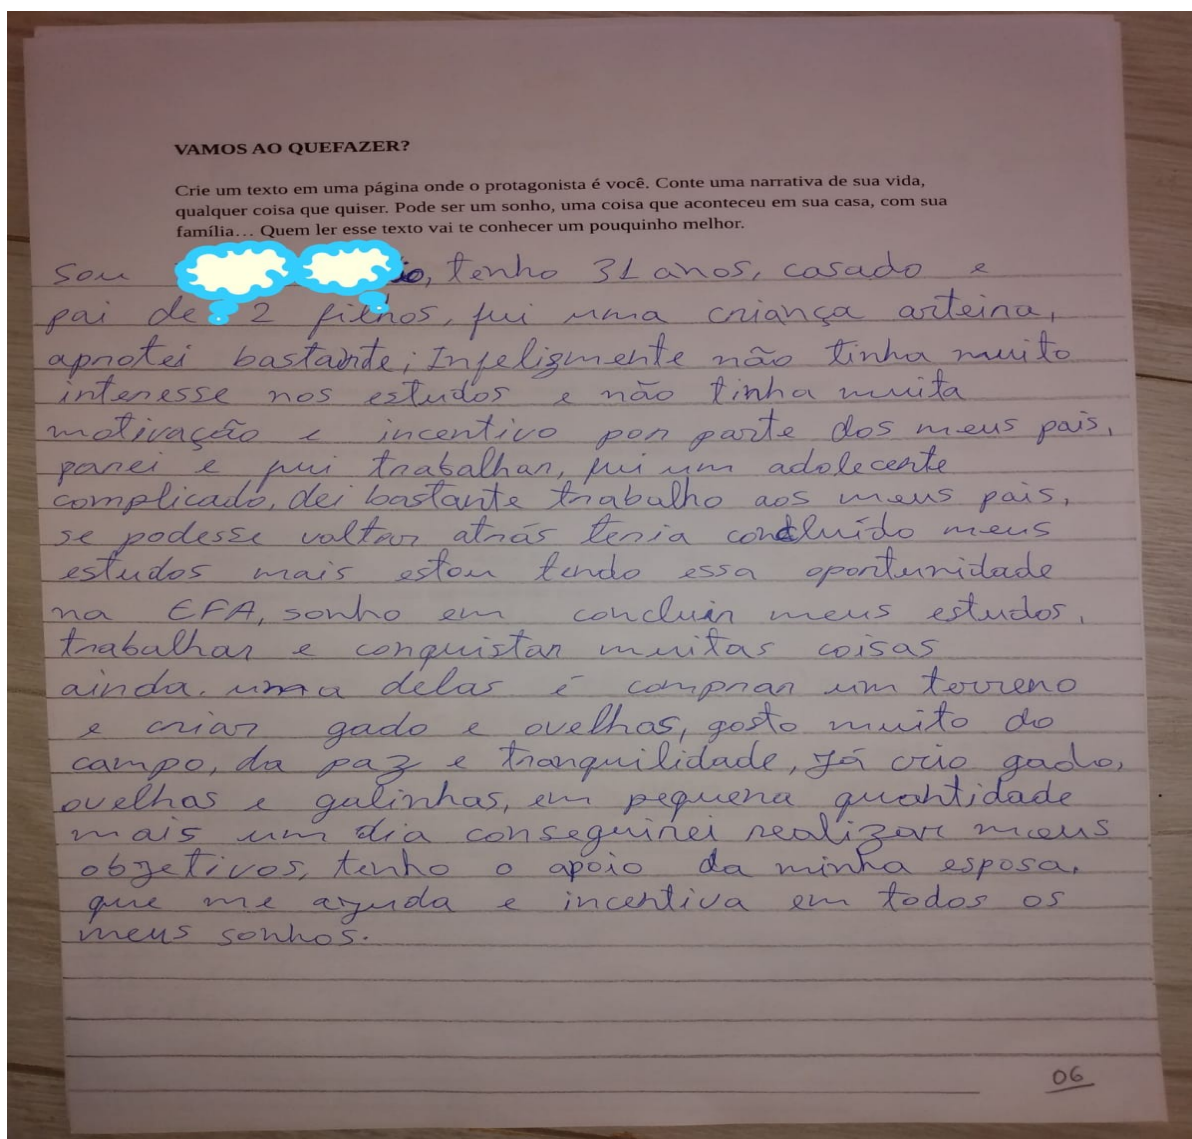 VAMOS AO QUEFAZER?
Crie um texto em uma página onde o protagonista é você. Conte uma narrativa de sua vida,
qualquer coisa que quiser. Pode ser um sonho, uma coisa que aconteceu em sua casa, com sua
família... Quem ler esse texto vai te conhecer um pouquinho melhor.
Sou io, tenho 31 anos, casado e
pai de 2 filhos, fui uma criança arteira,
aprotei bastante; Infelizmente não tinha muito
interesse nos estudos e não tinha muita
motivação e incentivo por parte dos meus pais,
parei e fui trabalhar, fui um adolecente
complicado, dei bastante trabalho aos meus pais,
se podesse voltar atrás teria concluído meus
estudos mais estou tendo essa oportunidade
na EFA, sonho em concluir meus estudos,
trabalhar e conquistar muitas coisas
ainda. uma delas é comprar um terreno
e criar gado e ovelhas, gosto muito do
campo, da paz e tranquilidade, já crio gado,
ovelhas e galinhas, em pequena quantidade
mais um dia conseguirei realizar meus
objetivos, tenho o apoio da minha esposa,
que me ajuda e incentiva em todos os
meus sonhos.
06